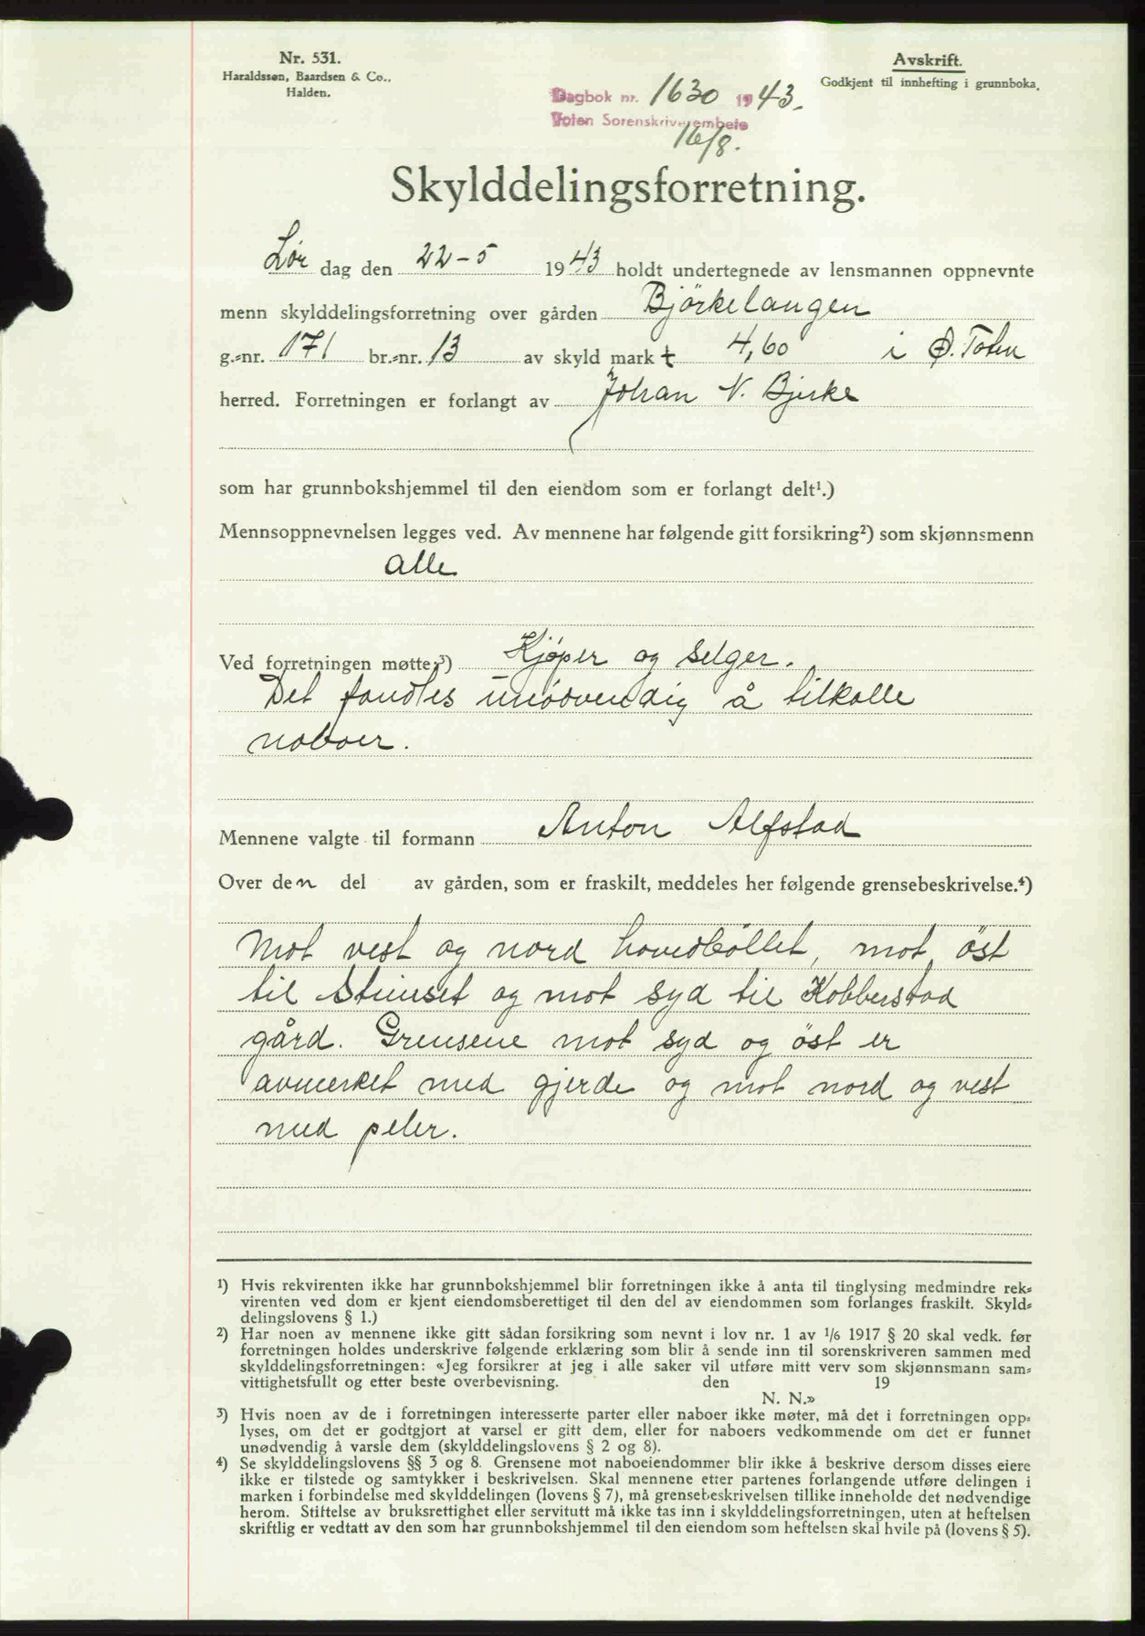 Nr. 531.
Haraldssøn, Baardsen & Co.,
Halden.
Avskrift.
Godkjent til innhefting i grunnboka.
Dagbok nr. 1630 1943.
Toten Sorenskriverembete
16/8.
Skylddelingsforretning.
Lør dag den 22-5 1943 holdt undertegnede av lensmannen oppnevnte
menn skylddelingsforretning over gården Björkelangen
g.-nr. 171 br.-nr. 13 av skyld mark 4,60 i Ø. Toten
herred. Forretningen er forlangt av Johan N. Bjerke
som har grunnbokshjemmel til den eiendom som er forlangt delt¹.)
Mennsoppnevnelsen legges ved. Av mennene har følgende gitt forsikring²) som skjønnsmenn
alle
Ved forretningen møtte³) Kjøper og selger.
Det fandtes unödvendig å tilkalle
naboer.
Mennene valgte til formann Anton Alfstad
Over den del av gården, som er fraskilt, meddeles her følgende grensebeskrivelse.⁴)
Mot vest og nord hovedböllet, mot öst
til Stenset og mot syd til Kobberstad
gård. Grensene mot syd og öst er
avmerket med gjerde og mot nord og vest
med peler.
¹) Hvis rekvirenten ikke har grunnbokshjemmel blir forretningen ikke å anta til tinglysing medmindre rek-
virenten ved dom er kjent eiendomsberettiget til den del av eiendommen som forlanges fraskilt. Skyld-
delingslovens § 1.)
²) Har noen av mennene ikke gitt sådan forsikring som nevnt i lov nr. 1 av 1/6 1917 § 20 skal vedk. før
forretningen holdes underskrive følgende erklæring som blir å sende inn til sorenskriveren sammen med
skylddelingsforretningen: «Jeg forsikrer at jeg i alle saker vil utføre mitt verv som skjønnsmann sam-
vittighetsfullt og etter beste overbevisning. den 19
N. N.»
³) Hvis noen av de i forretningen interesserte parter eller naboer ikke møter, må det i forretningen opp-
lyses, om det er godtgjort at varsel er gitt dem, eller for naboers vedkommende om det er funnet
unødvendig å varsle dem (skylddelingslovens § 2 og 8).
⁴) Se skylddelingslovens §§ 3 og 8. Grensene mot naboeiendommer blir ikke å beskrive dersom disses eiere
ikke er tilstede og samtykker i beskrivelsen. Skal mennene etter partenes forlangende utføre delingen i
marken i forbindelse med skylddelingen (lovens § 7), må grensebeskrivelsen tillike inneholde det nødvendige
herom. Stiftelse av bruksrettighet eller servitutt må ikke tas inn i skylddelingsforretningen, uten at heftelsen
skriftlig er vedtatt av den som har grunnbokshjemmel til den eiendom som heftelsen skal hvile på (lovens § 5).